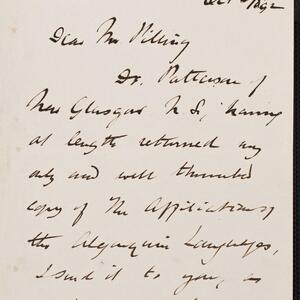 Oct 1892
Dear Mr Pilling
Dr. Patterson of
New Glasgow N.S., having
at length returned my
only and well thumbed
copy of The Affiliation of
the Algonquin Languages,
I send it to you, as